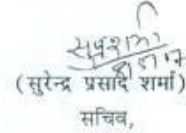 (सुरेन्द्र प्रसाद शर्मा)
सचिव,